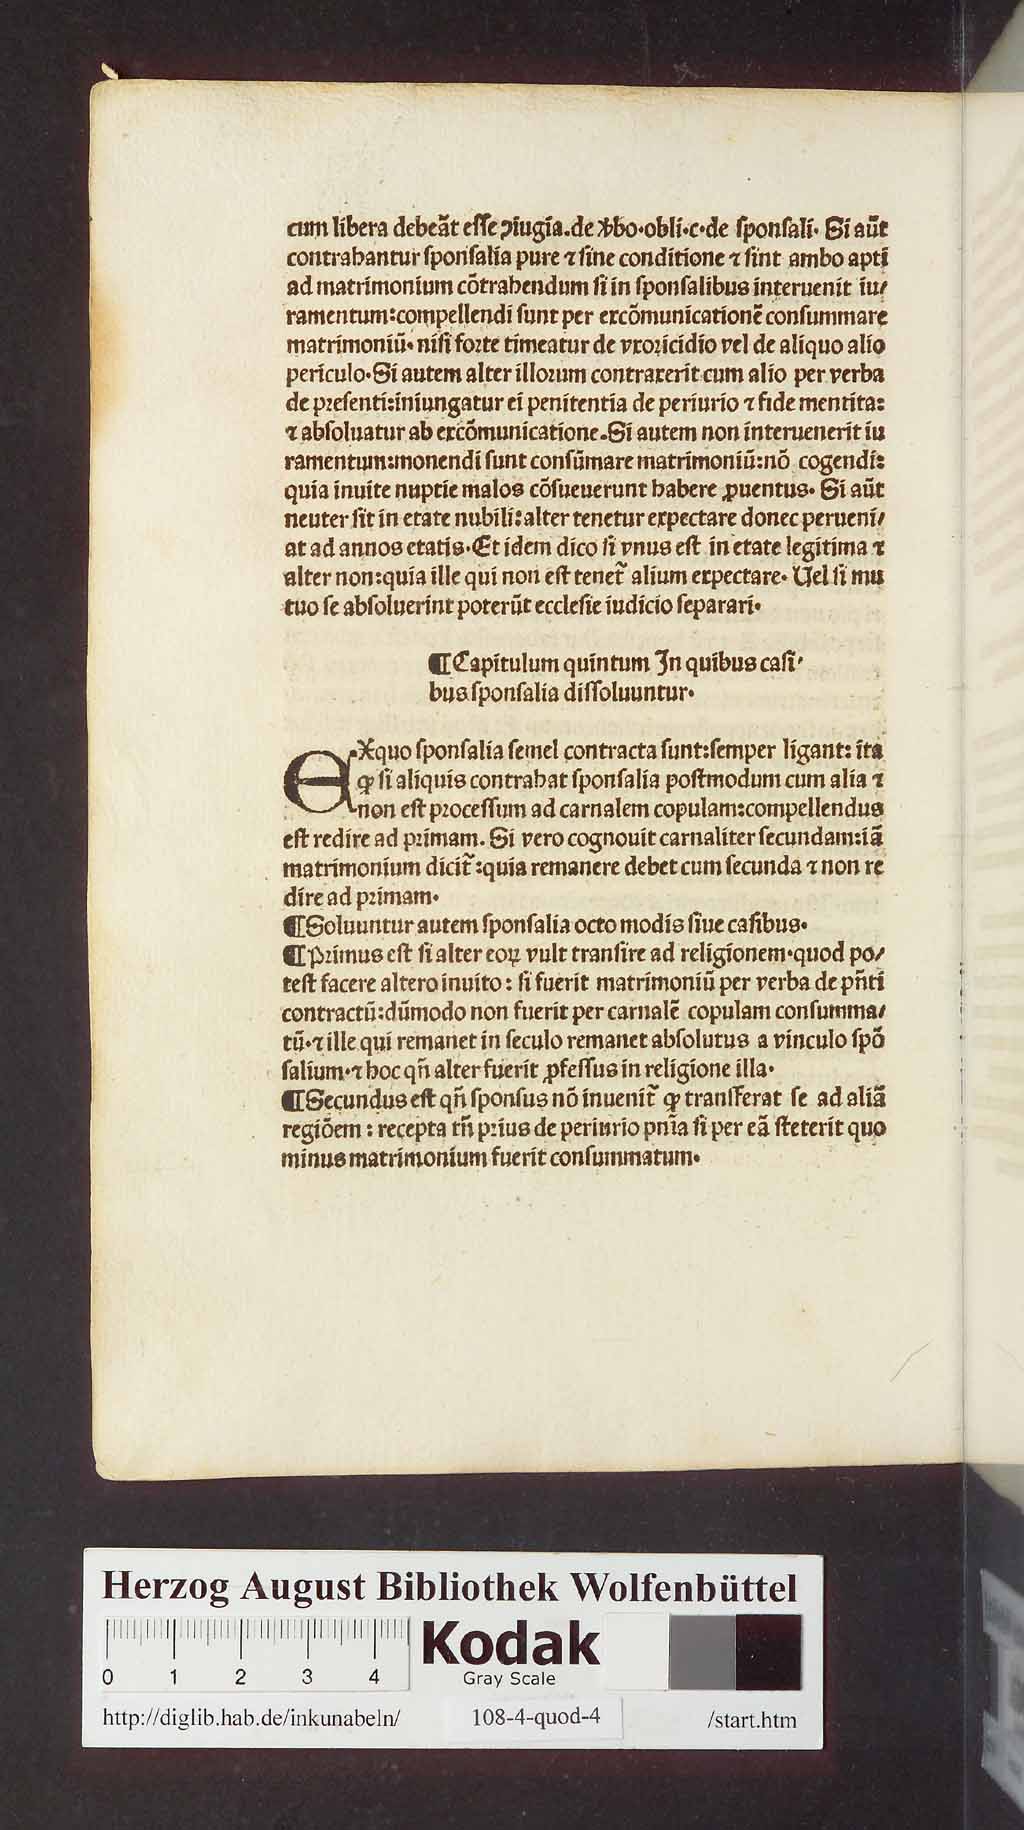 cum libera debeãt esse ꝯiugia.de ꝟbo·obli·c·de sponsali· Si aũt
contrahantur sponsalia pure ⁊ sine conditione ⁊ sint ambo apti
ad matrimonium cõtrahendum si in sponsalibus interuenit iu/
ramentum:compellendi sunt per excõmunicationẽ consummare
matrimoniũ· nisi forte timeatur de vxoricidio vel de aliquo alio
periculo·Si autem alter illorum contraxerit cum alio per verba
de presenti:iniungatur ei penitentia de periurio ⁊ fide mentita:
⁊ absoluatur ab excõmunicatione.Si autem non interuenerit iu
ramentum:monendi sunt consũmare matrimoniũ:nõ cogendi:
quia inuite nuptie malos cõsueuerunt habere ꝓuentus· Si aũt
neuter sit in etate nubili:alter tenetur expectare donec perueni/
at ad annos etatis·Et idem dico si vnus est in etate legitima ⁊
alter non:quia ille qui non est tenet̃ alium expectare· Uel si mu
tuo se absoluerint poterũt ecclesie iudicio separari·
¶Capitulum quintum In quibus casi/
bus sponsalia dissoluuntur·
EXquo sponsalia semel contracta sunt:semper ligant: ita
ꝙ si aliquis contrahat sponsalia postmodum cum alia ⁊
non est processum ad carnalem copulam:compellendus
est redire ad primam. Si vero cognouit carnaliter secundam:iã
matrimonium dicit̃:quia remanere debet cum secunda ⁊ non re
dire ad primam·
¶Soluuntur autem sponsalia octo modis siue casibus·
¶Primus est si alter eoꝝ vult transire ad religionem·quod po/
test facere altero inuito: si fuerit matrimoniũ per verba de pñti
contractũ:dũmodo non fuerit per carnalẽ copulam consumma/
tũ·⁊ ille qui remanet in seculo remanet absolutus a vinculo spõ
salium·⁊ hoc qñ alter fuerit ꝓfessus in religione illa·
¶Secundus est qñ sponsus nõ inuenit̃ ꝙ transferat se ad aliã
regiõem: recepta tñ prius de periurio pnĩa si per eã steterit quo
minus matrimonium fuerit consummatum·
Herzog August Bibliothek Wolfenbüttel
0 1 2 3 4
Kodak
Gray Scale
http://diglib.hab.de/inkunabeln/ 108-4-quod-4 /start.htm